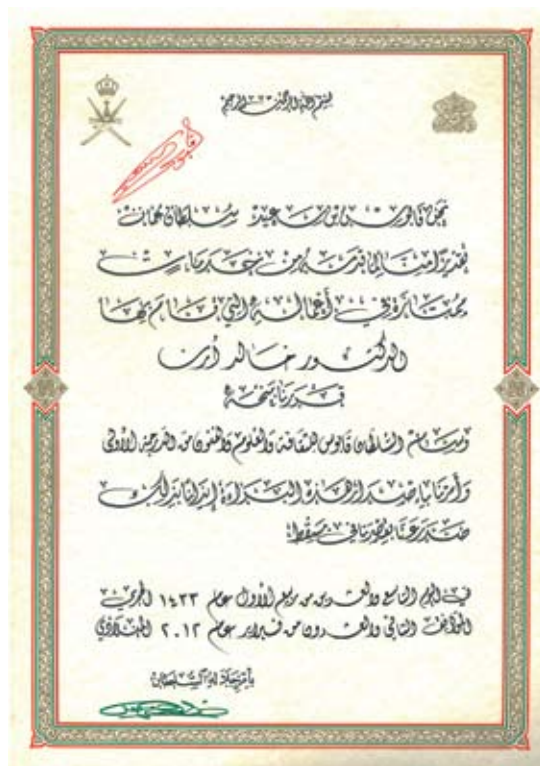 بسم الله الرحمن الرحيم
نحن قابوس بن سعيد سلطان عمان
تقديرا منا لما قدمه من خدمات
ممتازة في أعماله التي قام بها
الدكتور خالد أرن
قررنا منحه
وسام السلطان قابوس للثقافة والعلوم والفنون من الدرجة الأولى
وأمرنا بإصدار هذه البراءة إيذانا بذلك
صدر عنا بقصرنا في مسقط
في اليوم التاسع والعشرين من ربيع الأول عام ١٤٣٣ الهجري
الموافق الثاني والعشرون من فبراير عام ٢٠١٢ الميلادي
بأمر جلالة السلطان